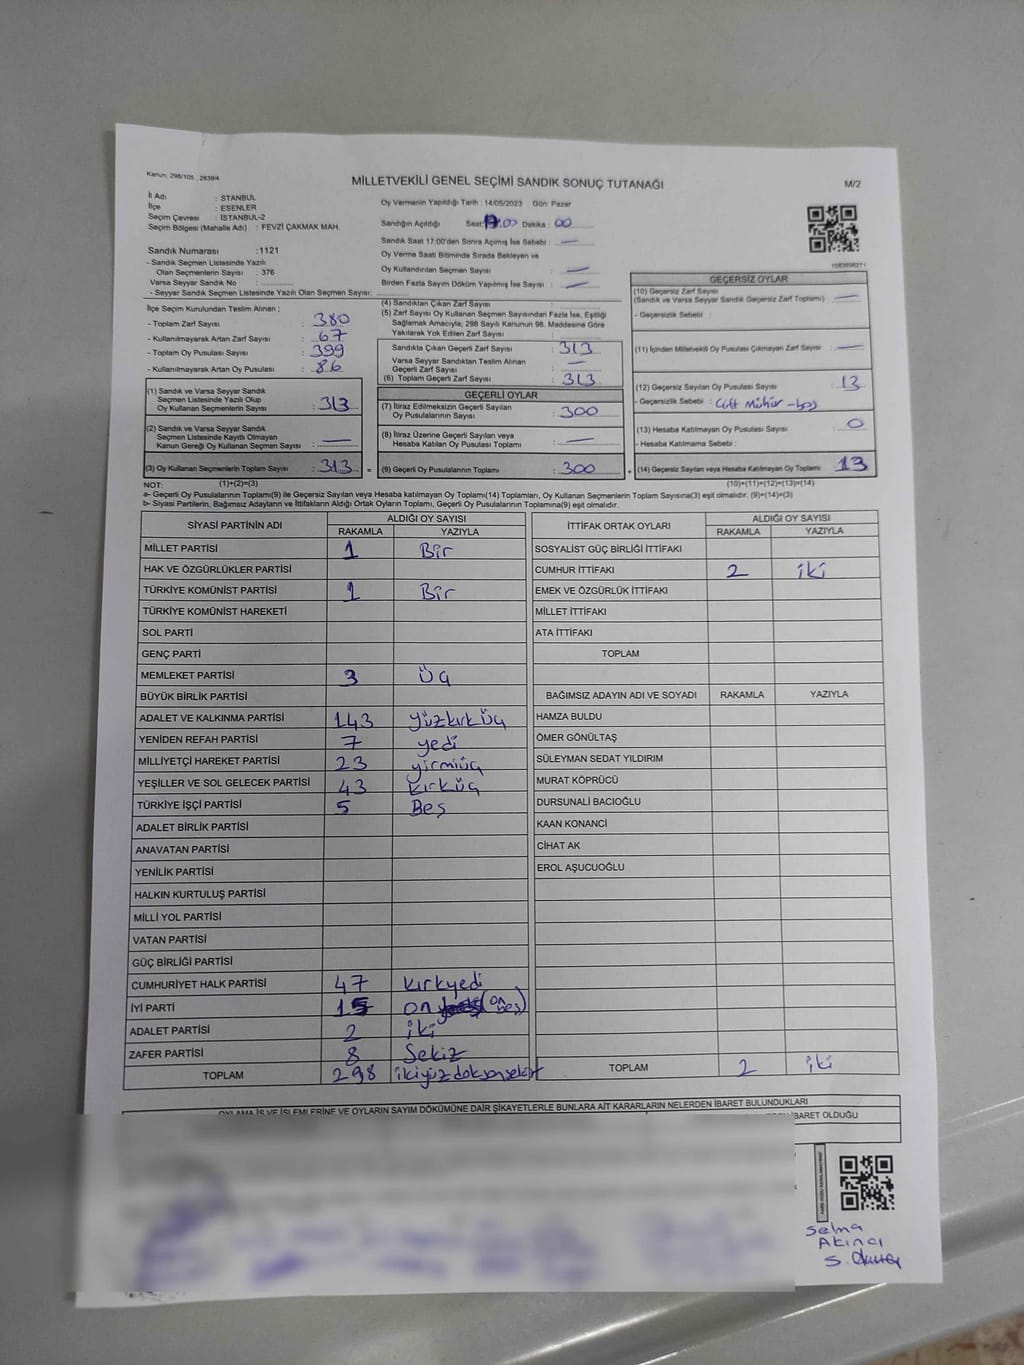 Kanun, 298/105 , 2839/4
MİLLETVEKİLİ GENEL SEÇİMİ SANDIK SONUÇ TUTANAĞI
M/2
İl Adı : STANBUL
İlçe : ESENLER
Seçim Çevresi : İSTANBUL-2
Seçim Bölgesi (Mahalle Adı) : FEVZİ ÇAKMAK MAH.
Sandık Numarası : 1121
- Sandık Seçmen Listesinde Yazılı
Olan Seçmenlerin Sayısı : 376
Varsa Seyyar Sandık No :
- Seyyar Sandık Seçmen Listesinde Yazılı Olan Seçmen Sayısı:
Oy Vermenin Yapıldığı Tarih : 14/05/2023 Gün: Pazar
Sandığın Açıldığı Saat: 17.00 Dakika : 00
Sandık Saat 17:00'den Sonra Açımış İse Sebebi : —
Oy Verme Saati Bitiminde Sırada Bekleyen ve
Oy Kullandırılan Seçmen Sayısı : —
Birden Fazla Sayım Döküm Yapılmış İse Sayısı : —
İlçe Seçim Kurulundan Teslim Alınan ;
- Toplam Zarf Sayısı : 380
- Kullanılmayarak Artan Zarf Sayısı : 67
- Toplam Oy Pusulası Sayısı : 399
- Kullanılmayarak Artan Oy Pusulası : 86
(1) Sandık ve Varsa Seyyar Sandık
Seçmen Listesinde Yazılı Olup
Oy Kullanan Seçmenlerin Sayısı : 313
(2) Sandık ve Varsa Seyyar Sandık
Seçmen Listesinde Kayıtlı Olmayan
Kanun Gereği Oy Kullanan Seçmen Sayısı : —
(3) Oy Kullanan Seçmenlerin Toplam Sayısı : 313 =
(4) Sandıktan Çıkan Zarf Sayısı :
(5) Zarf Sayısı Oy Kullanan Seçmen Sayısından Fazla İse, Eşitliği
Sağlamak Amacıyla; 298 Sayılı Kanunun 98. Maddesine Göre
Yakılarak Yok Edilen Zarf Sayısı :
Sandıkta Çıkan Geçerli Zarf Sayısı : 313
Varsa Seyyar Sandıktan Teslim Alınan
Geçerli Zarf Sayısı : —
(6) Toplam Geçerli Zarf Sayısı : 313
GEÇERLİ OYLAR
(7) İtiraz Edilmeksizin Geçerli Sayılan
Oy Pusulalarının Sayısı : 300
(8) İtiraz Üzerine Geçerli Sayılan veya
Hesaba Katılan Oy Pusulası Toplamı : —
(9) Geçerli Oy Pusulalarının Toplamı : 300 +
GEÇERSİZ OYLAR
(10) Geçersiz Zarf Sayısı
(Sandık ve Varsa Seyyar Sandık Geçersiz Zarf Toplamı) : —
- Geçersizlik Sebebi :
(11) İçinden Milletvekili Oy Pusulası Çıkmayan Zarf Sayısı : —
(12) Geçersiz Sayılan Oy Pusulası Sayısı : 13
- Geçersizlik Sebebi : Çift Mühür - boş
(13) Hesaba Katılmayan Oy Pusulası Sayısı : 0
- Hesaba Katılmama Sebebi :
(14) Geçersiz Sayılan veya Hesaba Katılmayan Oy Toplamı : 13
NOT: (1)+(2)=(3) (10)+(11)+(12)+(13)=(14)
a- Geçerli Oy Pusulalarının Toplamı(9) ile Geçersiz Sayılan veya Hesaba katılmayan Oy Toplamı(14) Toplamları, Oy Kullanan Seçmenlerin Toplam Sayısına(3) eşit olmalıdır. (9)+(14)=(3)
b- Siyasi Partilerin, Bağımsız Adayların ve İttifakların Aldığı Ortak Oyların Toplamı, Geçerli Oy Pusulalarının Toplamına(9) eşit olmalıdır.
SİYASİ PARTİNİN ADI ALDIĞI OY SAYISI
RAKAMLA YAZIYLA
MİLLET PARTİSİ 1 Bir
HAK VE ÖZGÜRLÜKLER PARTİSİ
TÜRKİYE KOMÜNİST PARTİSİ 1 Bir
TÜRKİYE KOMÜNİST HAREKETİ
SOL PARTİ
GENÇ PARTİ
MEMLEKET PARTİSİ 3 Üç
BÜYÜK BİRLİK PARTİSİ
ADALET VE KALKINMA PARTİSİ 143 yüzkırküç
YENİDEN REFAH PARTİSİ 7 yedi
MİLLİYETÇİ HAREKET PARTİSİ 23 yirmiüç
YEŞİLLER VE SOL GELECEK PARTİSİ 43 kırküç
TÜRKİYE İŞÇİ PARTİSİ 5 Beş
ADALET BİRLİK PARTİSİ
ANAVATAN PARTİSİ
YENİLİK PARTİSİ
HALKIN KURTULUŞ PARTİSİ
MİLLİ YOL PARTİSİ
VATAN PARTİSİ
GÜÇ BİRLİĞİ PARTİSİ
CUMHURİYET HALK PARTİSİ 47 kırkyedi
İYİ PARTİ 15 on (on beş)
ADALET PARTİSİ 2 iki
ZAFER PARTİSİ 8 Sekiz
TOPLAM 298 ikiyüzdoksansekiz
İTTİFAK ORTAK OYLARI ALDIĞI OY SAYISI
RAKAMLA YAZIYLA
SOSYALİST GÜÇ BİRLİĞİ İTTİFAKI
CUMHUR İTTİFAKI 2 iki
EMEK VE ÖZGÜRLÜK İTTİFAKI
MİLLET İTTİFAKI
ATA İTTİFAKI
TOPLAM
BAĞIMSIZ ADAYIN ADI VE SOYADI RAKAMLA YAZIYLA
HAMZA BULDU
ÖMER GÖNÜLTAŞ
SÜLEYMAN SEDAT YILDIRIM
MURAT KÖPRÜCÜ
DURSUNALİ BACIOĞLU
KAAN KONANCİ
CİHAT AK
EROL AŞUCUOĞLU
TOPLAM 2 iki
OYLAMA İŞ VE İŞLEMLERİNE VE OYLARIN SAYIM DÖKÜMÜNE DAİR ŞİKAYETLERLE BUNLARA AİT KARARLARIN NELERDEN İBARET BULUNDUKLARI
İBARET OLDUĞU
Selma
Akıncı